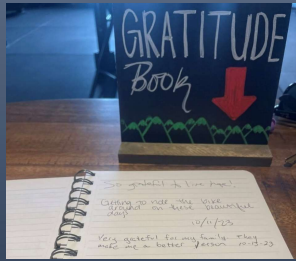 GRATITUDE
Book
So grateful to live here!
Getting to ride my bike
around on these beautiful
days
10/11/23
Very grateful for my family they
make me a better person